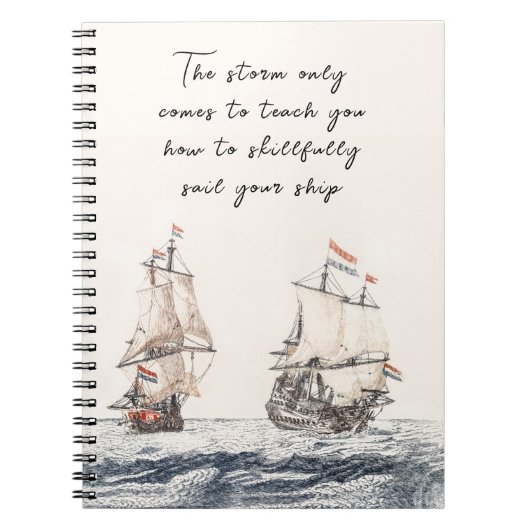 The storm only
comes to teach you
how to skillfully
sail your ship